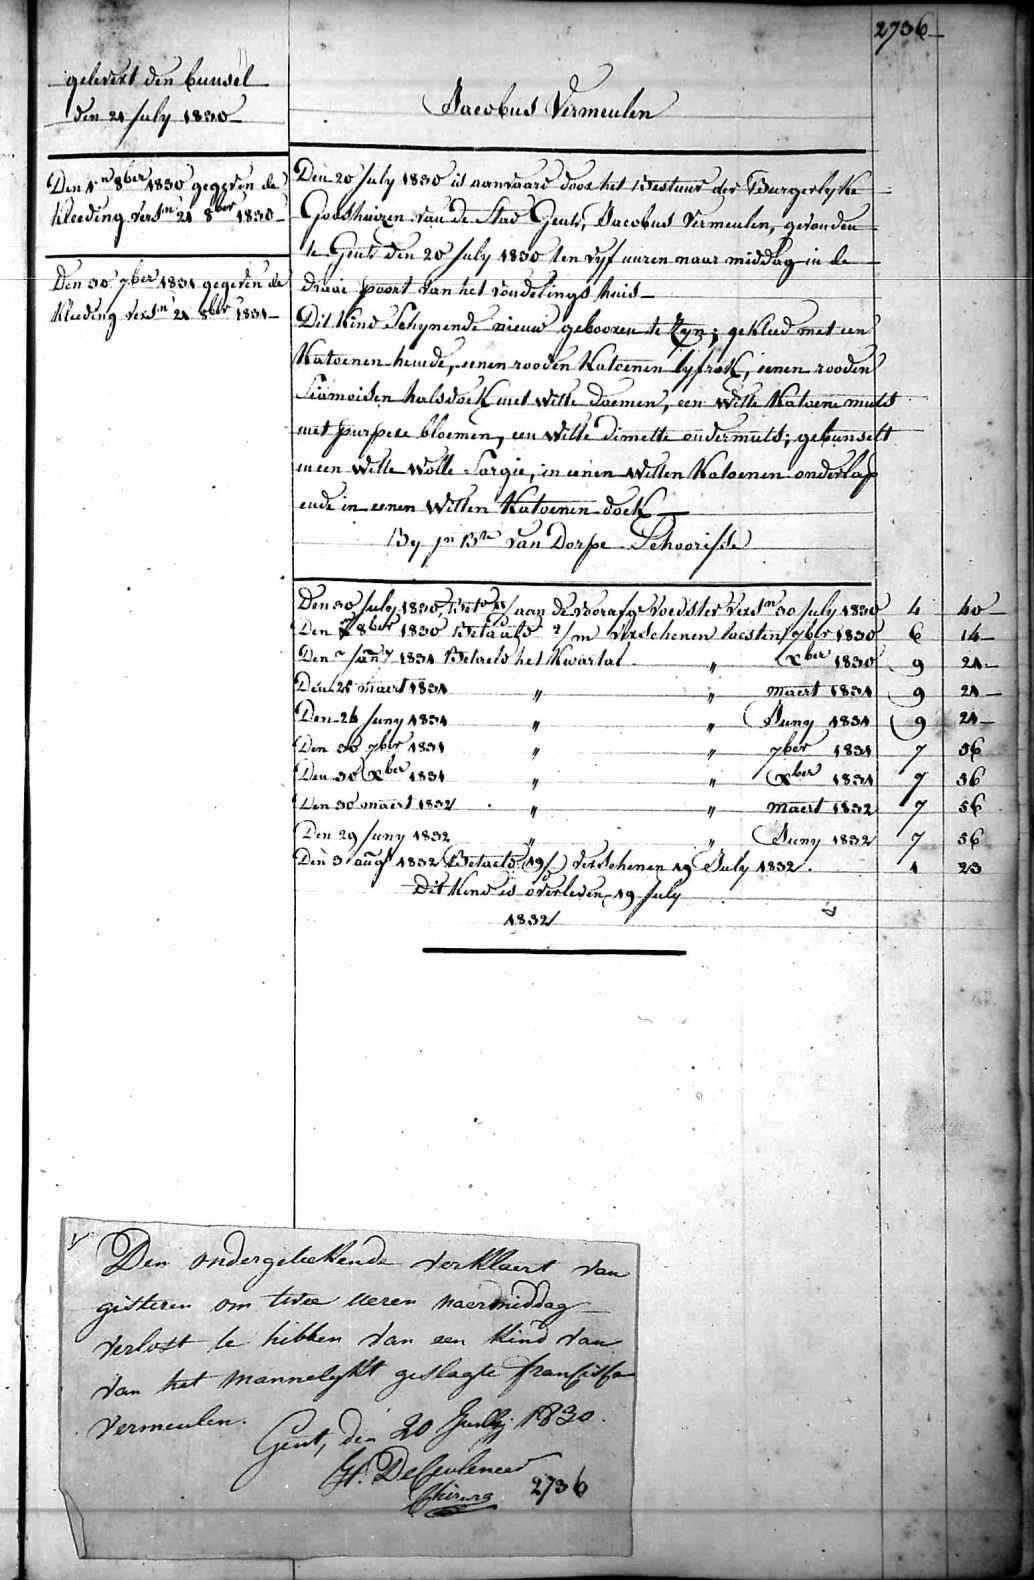 2736
gelevert den bunsel
den 21 July 1830
Jacobus Vermeulen
Den 1n 8ber 1830 gegeven de
kleeding versn 21 8ber 1830
Den 30 7ber 1831 gegeven de
kleeding versn 21 8ber 1831
Den 20 July 1830 is aanvaard door het Bestuur der Burgerlyke
Godshuizen van de Stad Gend, Jacobus Vermeulen, gevonden
te Gend den 20 July 1830 ten vyf uuren naar middag in de
draai poort van het vondelings huis
Dit Kind Schynende nieuw gebooren te Zyn; gekleed met een
Katoenen hemde, eenen rooden Katoenen lyfrok, eenen rooden
Siamoisen halsdoek met witte daemen, een witte Katoene muts
met purpere bloemen, een witte dimette ondermuts; gebunselt
in een witte wolle Sargie, in eenen witten Katoenen onderlap
ende in eenen witten Katoenen doek
By Jn Bte van Dorpe Schoorisse
Den 30 July 1830 Beto aan de Vorafge Voedster versn 30 July 1830 4 40
Den 8ber 1830 Betaald 2/m verschenen laesten 7ber 1830 6 14
Den Jany 1831 Betaeld het Kwartal " Xber 1830 9 21
Den 25 maert 1831 " " maert 1831 9 21
Den 26 Juny 1831 " " Juny 1831 9 21
Den 30 7ber 1831 " " 7ber 1831 7 56
Den 30 Xber 1831 " " Xber 1831 7 56
Den 30 maert 1832 " " maert 1832 7 56
Den 29 Juny 1832 " " Juny 1832 7 56
Den 3 augt 1832 Betaeld 19/ verschenen 19 July 1832. 1 23
Dit Kind is overleden 19 July
1832
Den ondergeteekende verklaert van
gisteren om twee ueren naermiddag
verlost te hebben van een kind van
van het mannelykt geslagte francisca
vermeulen.
Gent, den 20 July 1830.
DeCeuleneer
Chirurg
2736